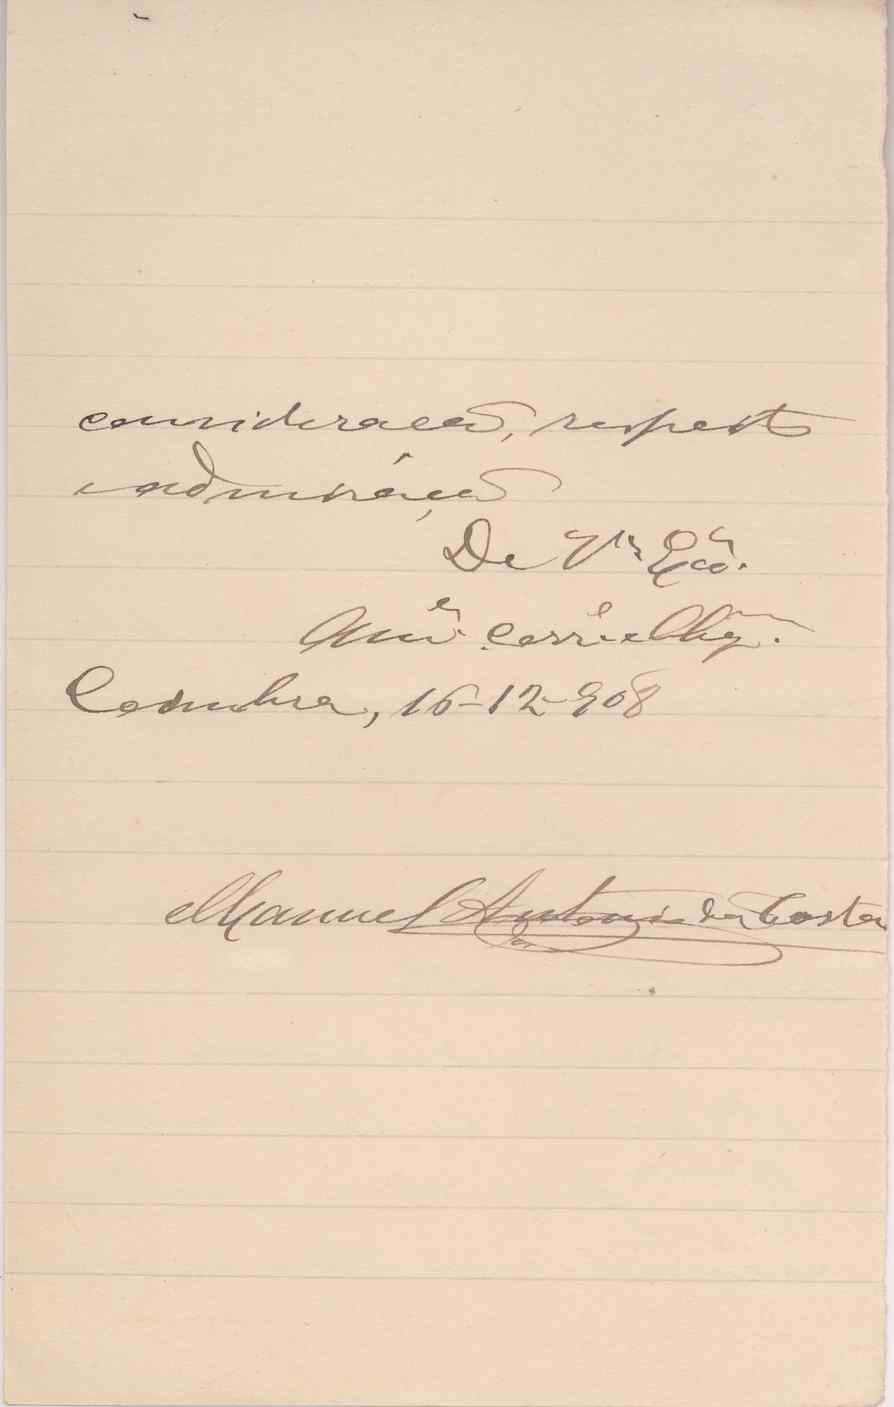 consideração, respeito
e admiração
De V. Exª.
Amº. correlgº.
Coimbra, 16-12-908
Manuel Antonio da Costa